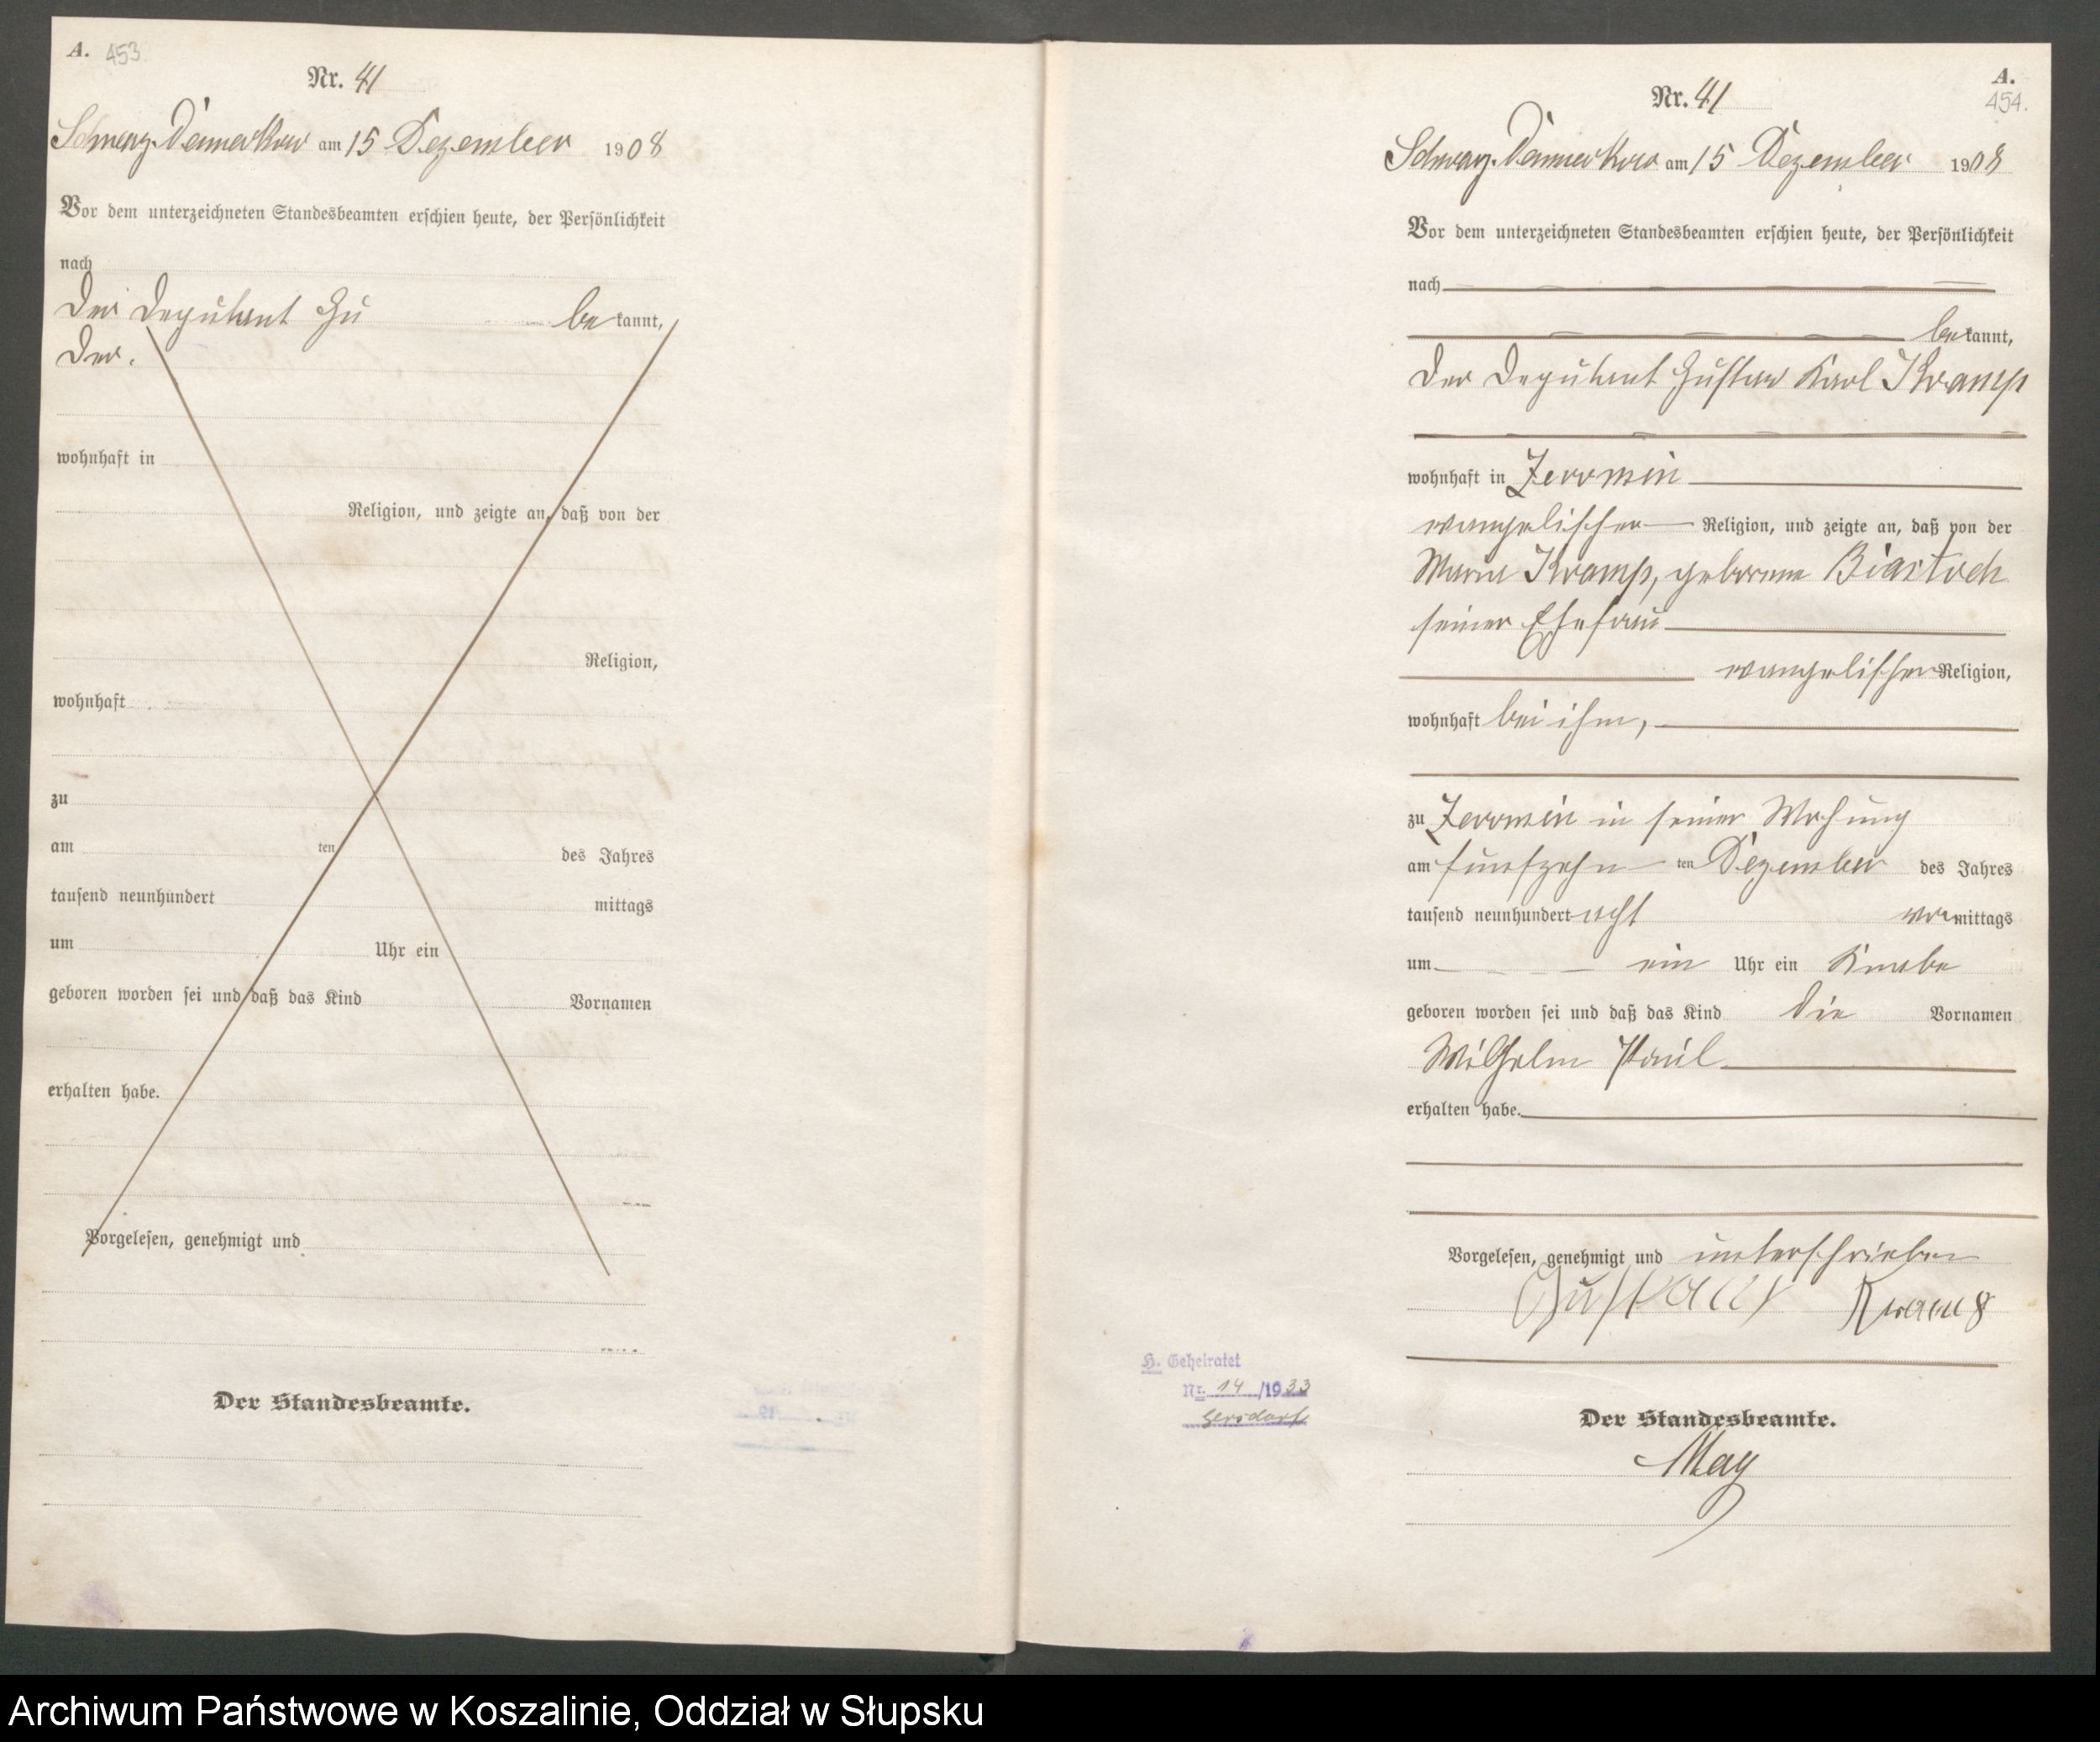 A. 453
Nr. 41
Schwarz-Damerkow am 15 Dezember 1908
Vor dem unterzeichneten Standesbeamten erschien heute, der Persönlichkeit
nach
Der Deputant Gu bekannt,
Der.
wohnhaft in
Religion, und zeigte an, daß von der
Religion,
wohnhaft
zu
am ten des Jahres
tausend neunhundert mittags
um Uhr ein
geboren worden sei und daß das Kind Vornamen
erhalten habe.
Vorgelesen, genehmigt und
Der Standesbeamte.
A.
454.
Nr. 41
Schwarz-Damerkow am 15 Dezember 1908
Vor dem unterzeichneten Standesbeamten erschien heute, der Persönlichkeit
nach
bekannt,
Der Deputant Gustav Karl Kramp
wohnhaft in Jerromin
evangelischer Religion, und zeigte an, daß von der
Marie Kramp, geborene Biastoch
seiner Ehefrau
evangelischer Religion,
wohnhaft bei ihm,
zu Jerromin in seiner Wohung
am fünfzehn ten Dezember des Jahres
tausend neunhundert acht vormittags
um ein Uhr ein Knabe
geboren worden sei und daß das Kind die Vornamen
Wilhelm Paul
erhalten habe.
Vorgelesen, genehmigt und unterschrieben
Gustav Kramp
H. Geheiratet
Nr. 14/1933
Der Standesbeamte.
May
Archiwum Państwowe w Koszalinie, Oddział w Słupsku